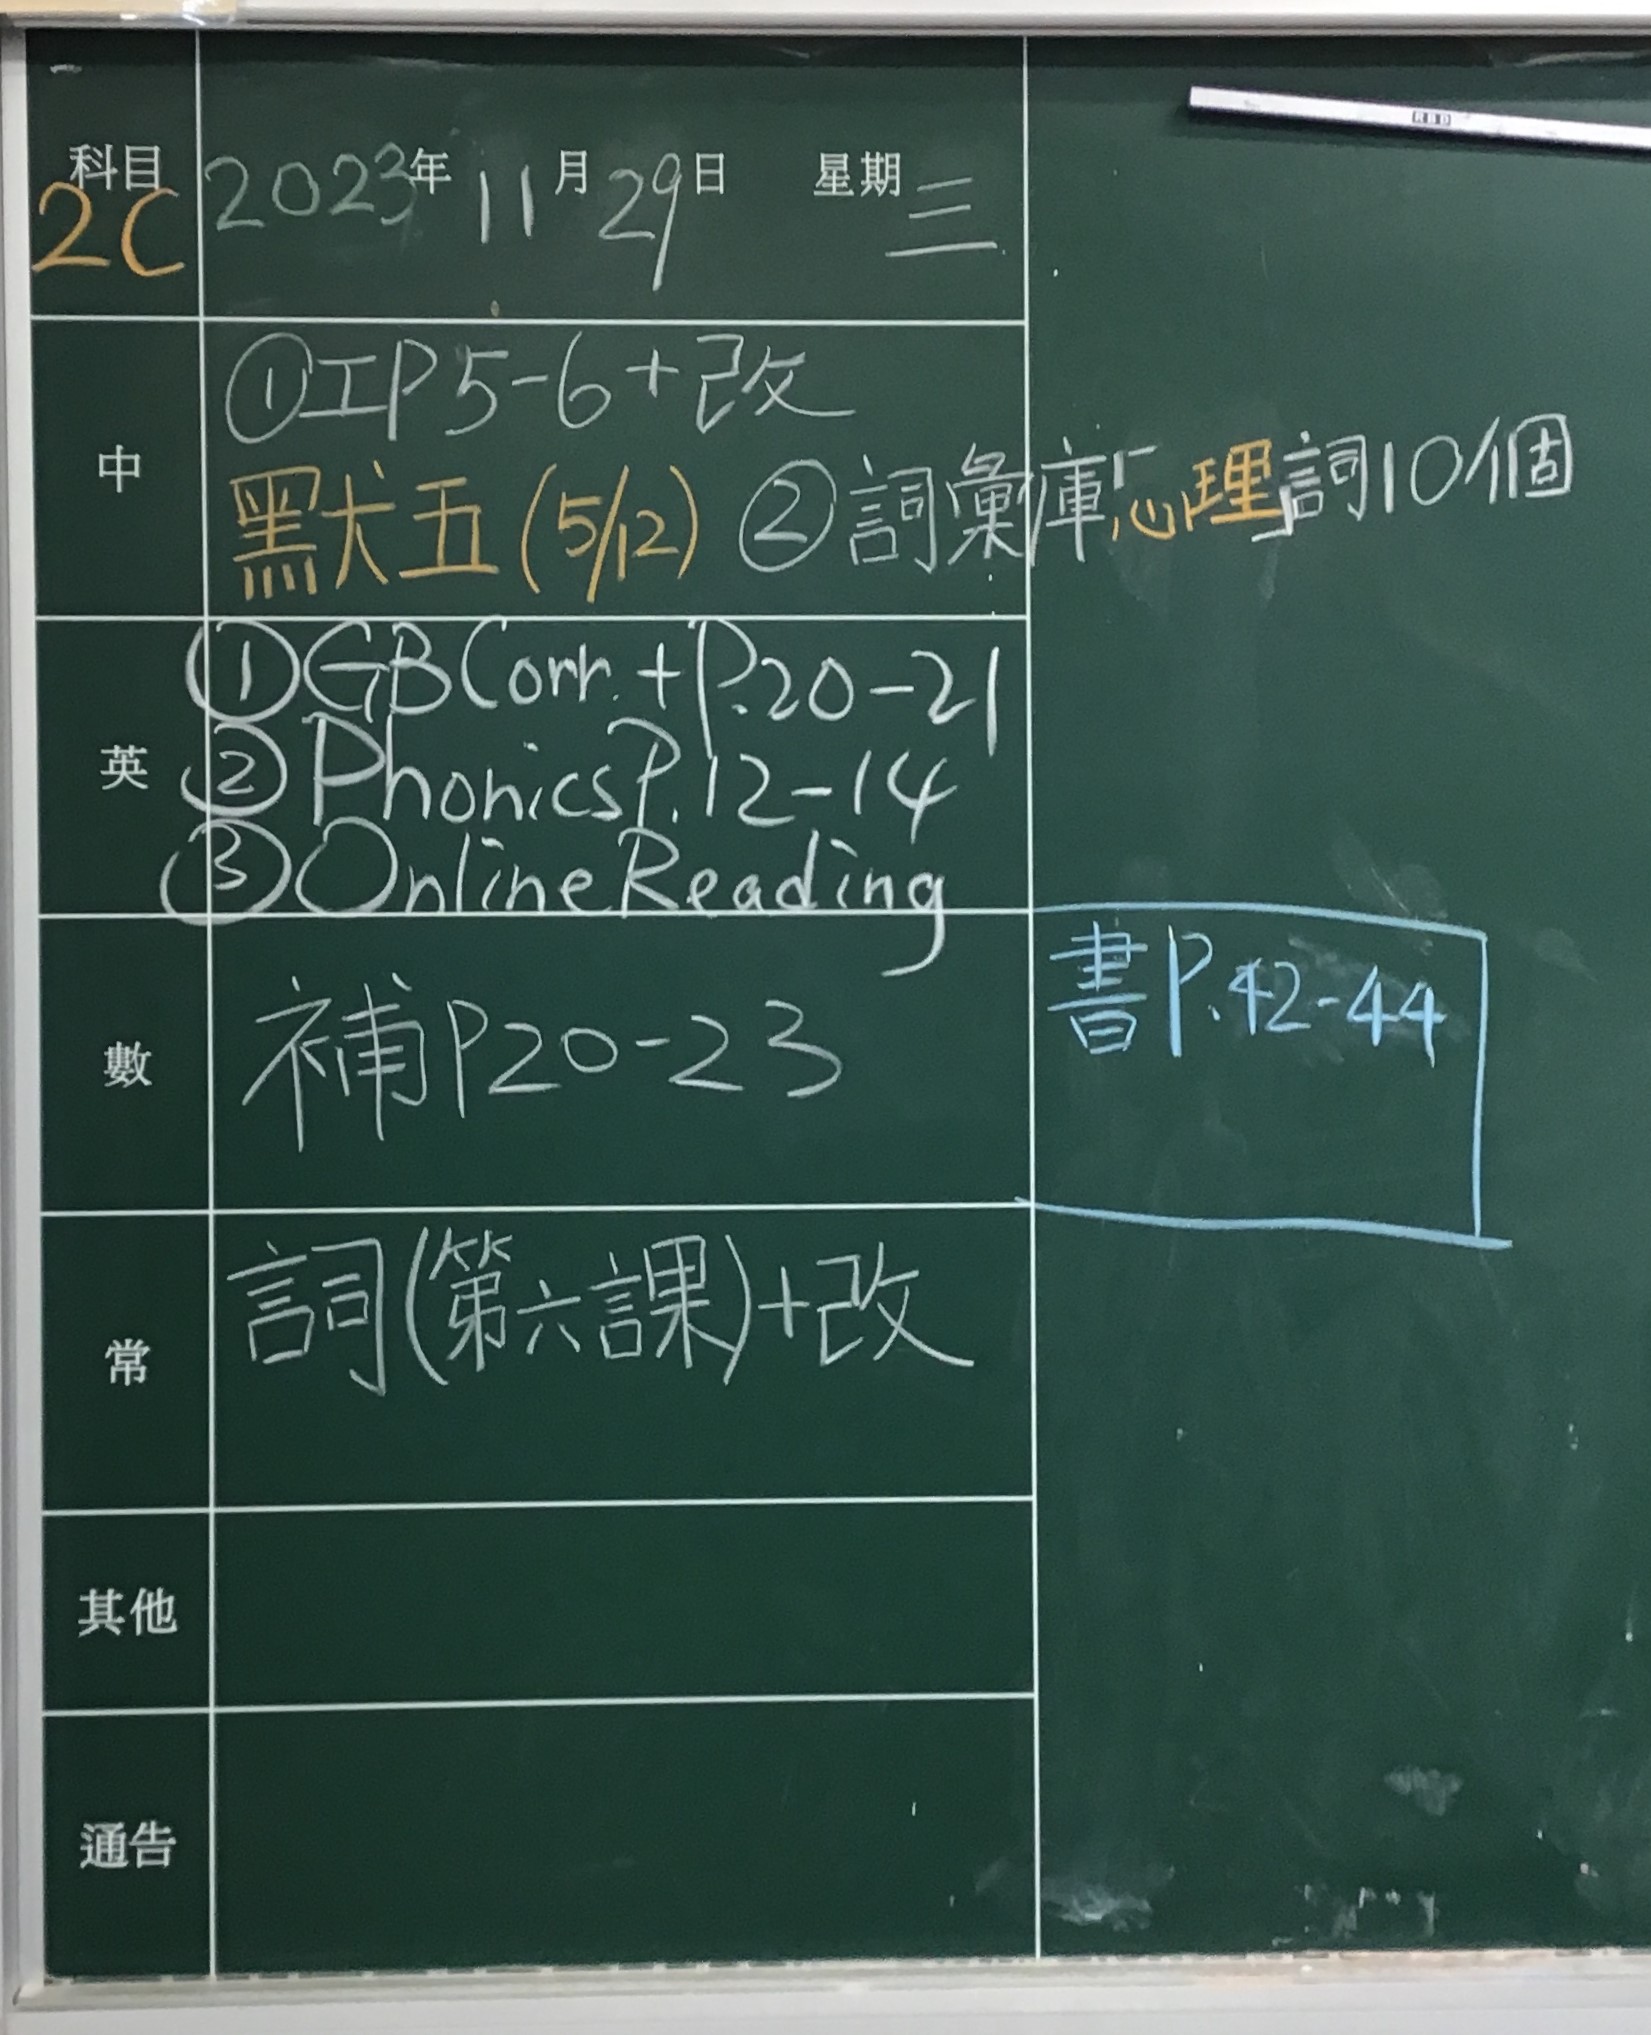 科目 2023年11月29日 星期三
2C
中
①工P5-6+改
默五(5/12) ②詞彙庫「心理」詞10個
英
①GBCorr.+P.20-21
②Phonics P.12-14
③Online Reading
數
補P20-23
書P.42-44
常
詞(第六課)+改
其他
通告